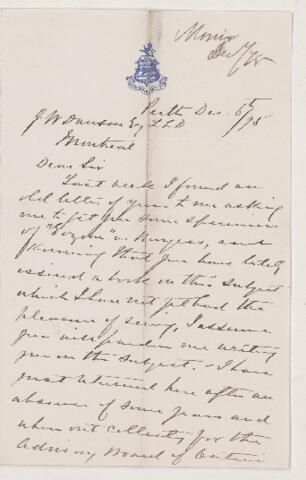 Perth Dec. 6th/75
J W Dawson Esq LLD
Montreal
Dear Sir
Last week I found an
old letter of yours to me asking
me to get you some specimens
of "Eozoon" in Burgess, and
knowing that you have lately
issued a book on this subject
which I have not yet had the
pleasure of seeing, I assume
you will pardon me writing
you on the subject. - I have
just returned here after an
absence of some years and
when out collecting for the
Advisory Board of Ontario